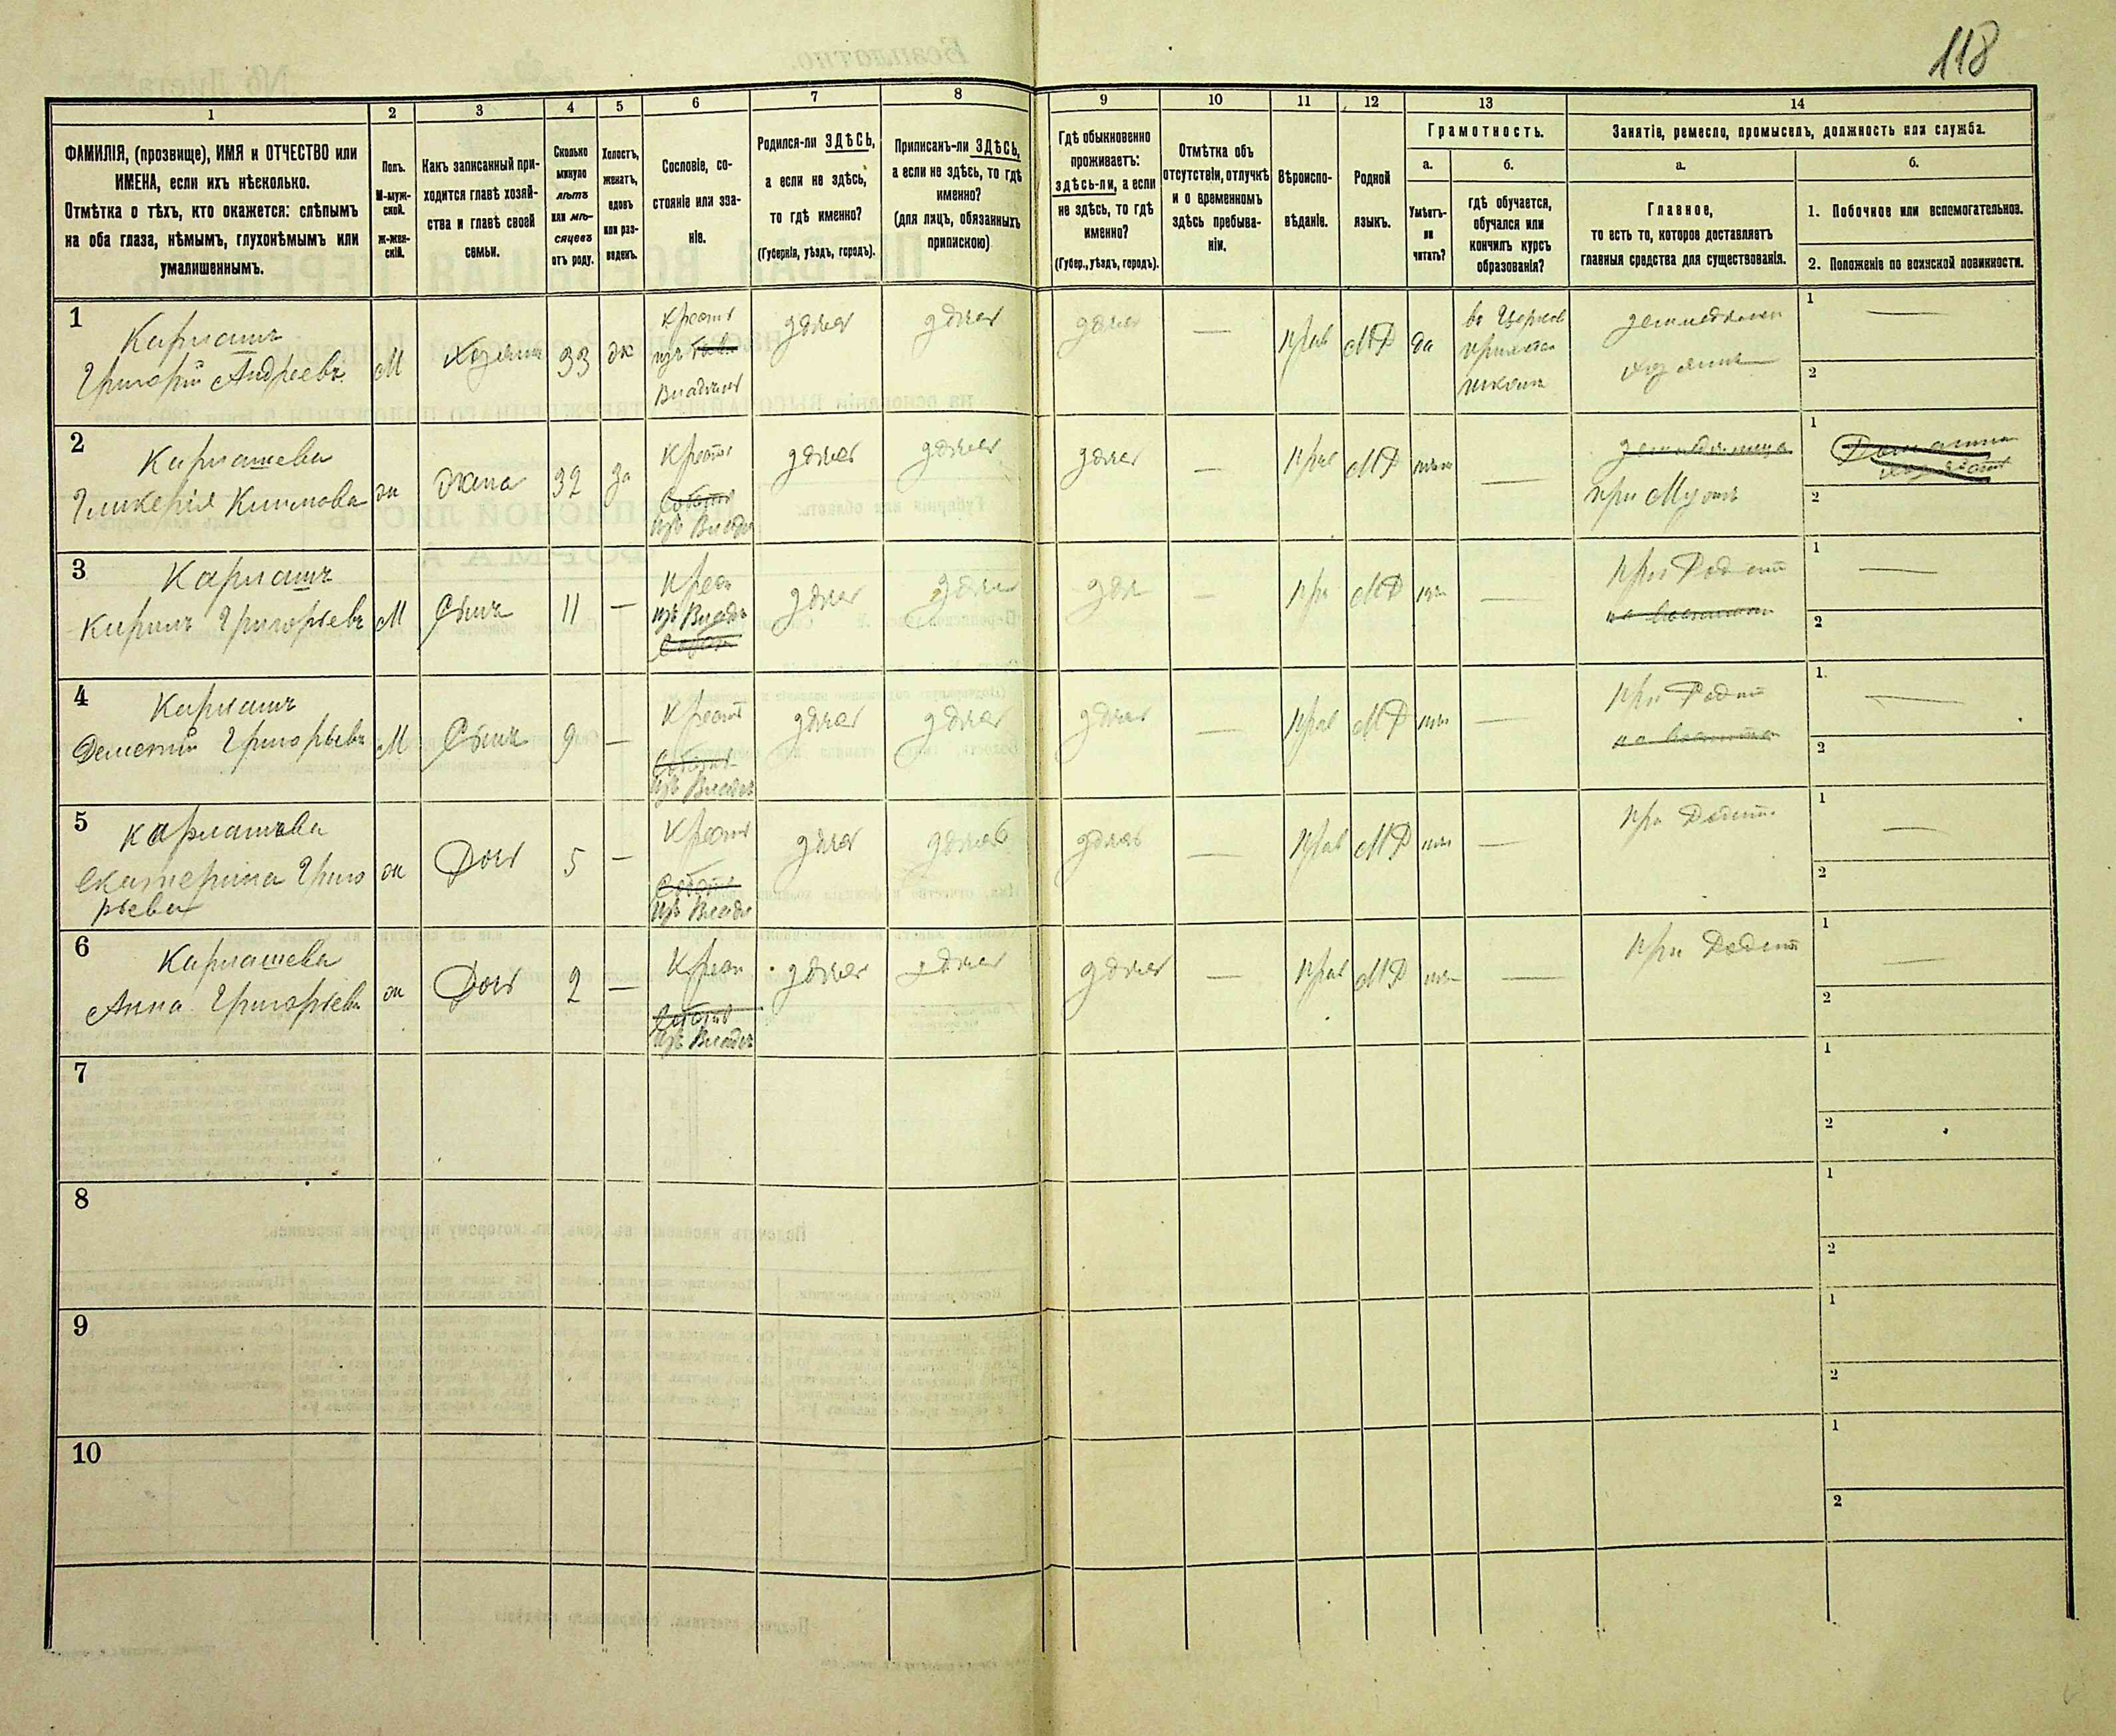 118
1
2
3
4
5
6
7
8
9
10
11
12
13
14
ФАМИЛІЯ, (прозвище), ИМЯ и ОТЧЕСТВО или
ИМЕНА, если ихъ нѣсколько.
Отмѣтка о тѣхъ, кто окажется: слѣпымъ
на оба глаза, нѣмымъ, глухонѣмымъ или
умалишеннымъ.
Полъ.
М-муж-
ской.
Ж-жен-
скій.
Какъ записанный при-
ходится главѣ хозяй-
ства и главѣ своей
семьи.
Сколько
минуло
лѣтъ
или мѣ-
сяцевъ
отъ роду.
Холостъ,
женатъ,
вдовъ
или раз-
веденъ.
Сословіе, со-
стояніе или зва-
ніе.
Родился-ли ЗДѢСЬ,
а если не здѣсь,
то гдѣ именно?
(Губернія, уѣздъ, городъ).
Приписанъ-ли ЗДѢСЬ,
а если не здѣсь, то гдѣ
именно?
(для лицъ, обязанныхъ
припискою)
Гдѣ обыкновенно
проживаетъ:
здѣсь-ли, а если
не здѣсь, то гдѣ
именно?
(Губер., уѣздъ, городъ).
Отмѣтка объ
отсутствіи, отлучкѣ
и о временномъ
здѣсь пребыва-
ніи.
Вѣроиспо-
вѣданіе.
Родной
языкъ.
Грамотность.
а.
Умѣетъ-
ли
читать?
б.
гдѣ обучается,
обучался или
кончилъ курсъ
образованія?
Занятіе, ремесло, промыселъ, должность или служба.
а.
Главное,
то есть то, которое доставляетъ
главныя средства для существованія.
б.
1. Побочное или вспомогательное.
2. Положеніе по воинской повинности.
1
Григорій Андреевъ
М
Хозяинъ
33
ж
Крестъ
изъ
Владѣльч
здѣсь
здѣсь
здѣсь
—
Прав
МР
да
въ Церков
приходск
школѣ
земледѣлецъ
хозяинъ
1
—
2
2
Гликерія Климова
ж
жена
32
за
Крест
изъ Владѣ
здѣсь
здѣсь
здѣсь
—
Прав
МР
нѣтъ
—
при Мужѣ
1
2
3
Кирилъ Григорьевъ
М
Сынъ
11
—
Крес
изъ Владѣ
здѣсь
здѣсь
здѣ
—
Пра
МР
нѣ
—
при Родит
1
—
2
4
Григорьевъ
М
Сынъ
9
—
Крест
изъ Владѣ
здѣсь
здѣсь
здѣсь
—
Прав
МР
нѣт
—
при Родит
1
—
2
5
Екатерина Григо
рьева
ж
Дочь
5
—
Крест
изъ Владѣ
здѣсь
здѣсь
здѣсь
—
Прав
МР
нѣт
—
при Родит
1
—
2
6
Анна Григорьева
ж
Дочь
2
—
Крест
изъ Владѣ
здѣсь
здѣсь
здѣсь
—
Прав
МР
нѣт
—
при Родит
1
—
2
7
1
2
8
1
2
9
1
2
10
1
2